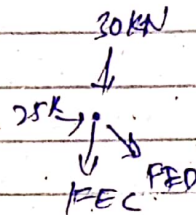 30KN
25K
FEC
FED